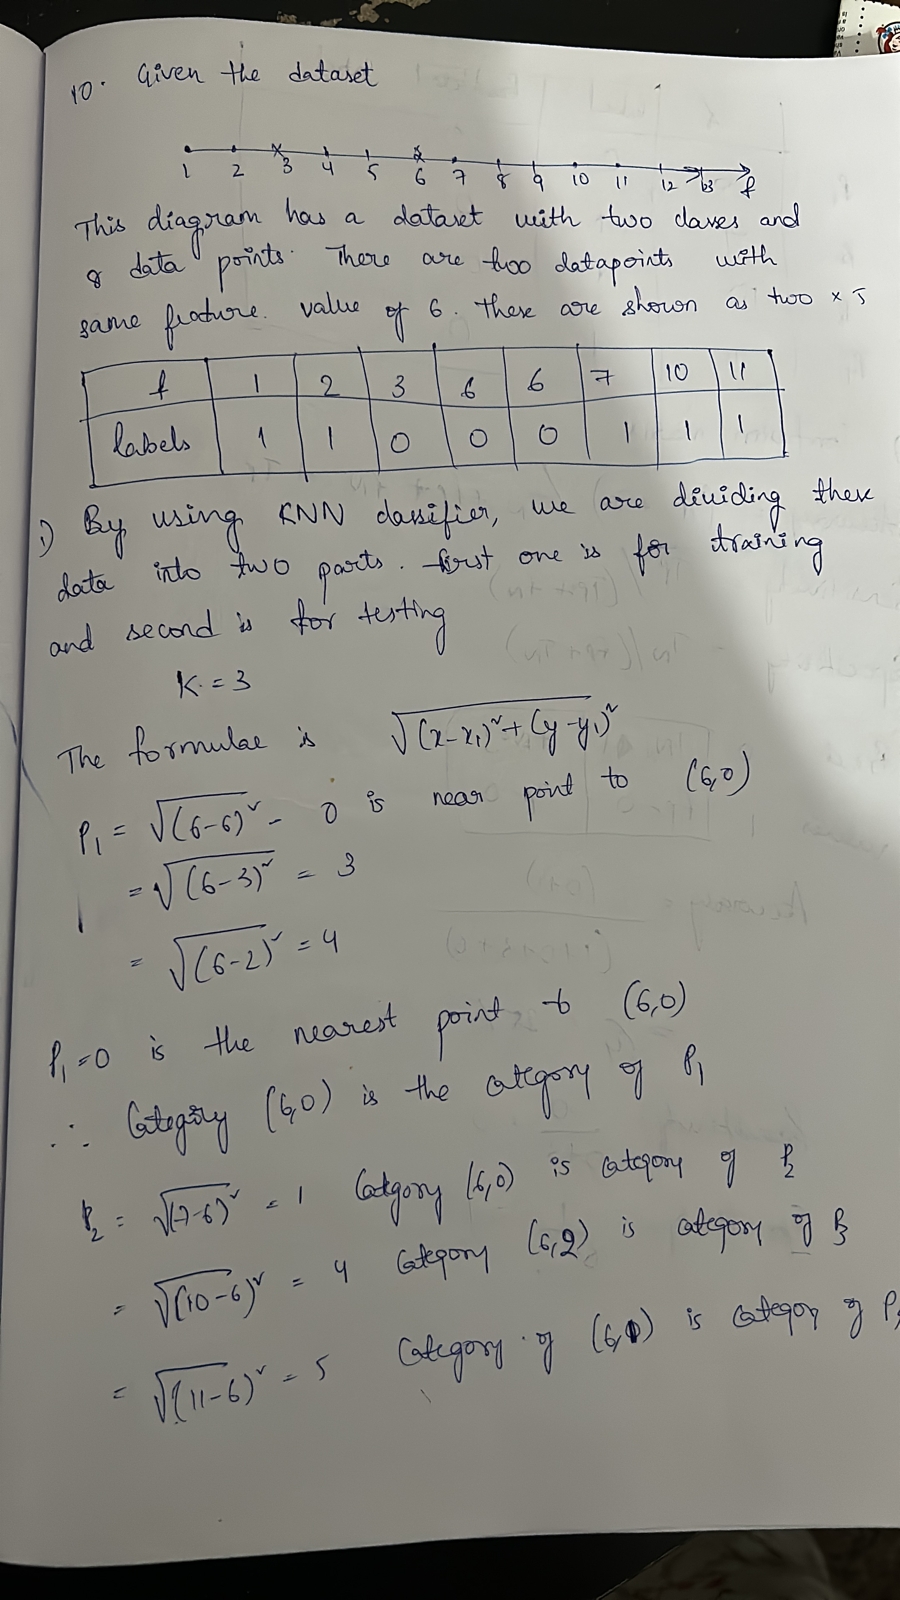 10. Given the dataset
1 2 3 4 5 6 7 8 9 10 11 12 13 f
This diagram has a dataset with two classes and
8 data points. There are two datapoints with
same feature value of 6. These are shown as two x s
f 1 2 3 6 6 7 10 11
labels 1 1 0 0 0 1 1 1
i) By using KNN classifier, we are dividing these
data into two parts. first one is for training
and second is for testing
K = 3
The formulae is √(x-x₁)²+(y-y₁)²
P₁ = √(6-6)² - 0 is near point to (6,0)
= √(6-3)² = 3
= √(6-2)² = 4
P₁=0 is the nearest point to (6,0)
∴ Category (6,0) is the category of P₁
P₂ = √(7-6)² = 1 Category (6,0) is category of P₂
= √(10-6)² = 4 Category (6,2) is category of P₃
= √(11-6)² = 5 Category of (6,) is category of